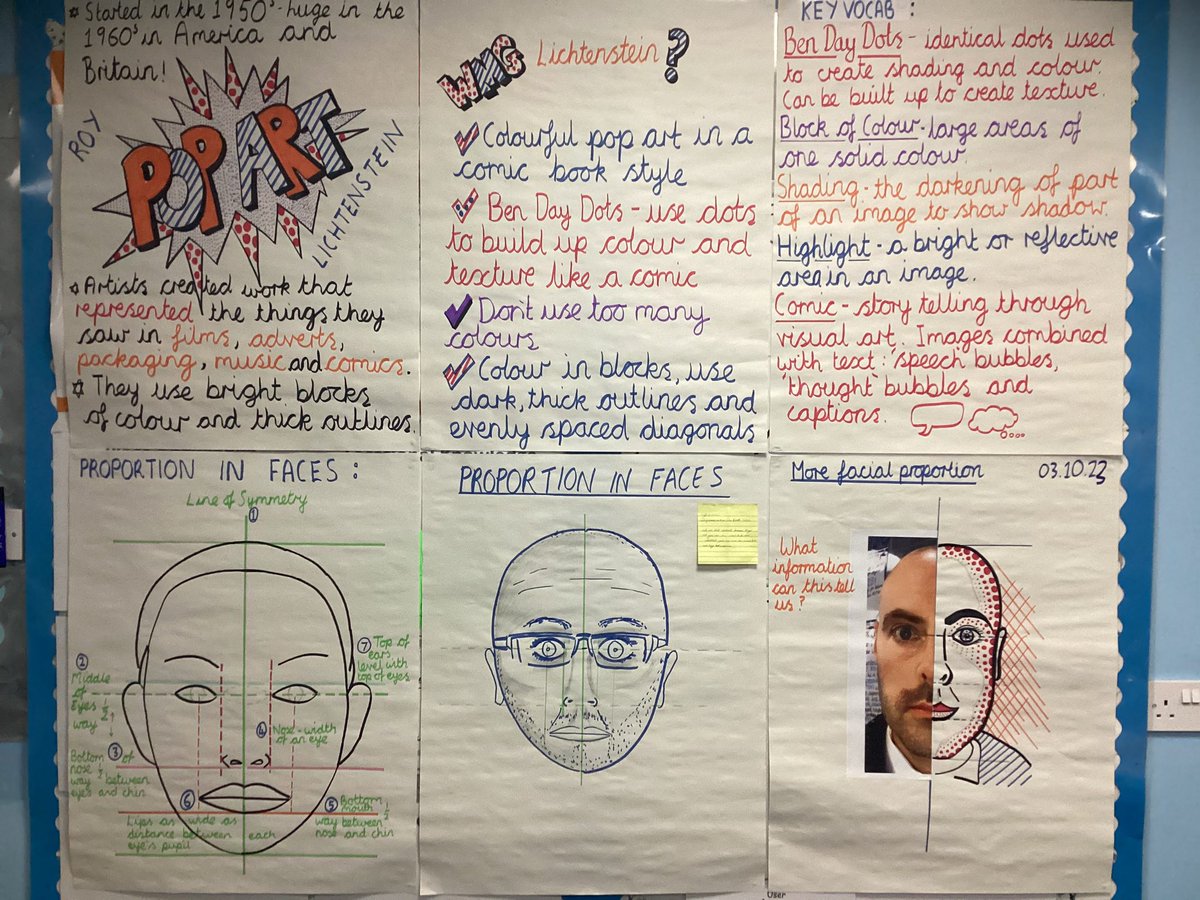 ✡ Started in the 1950s - huge in the
1960s in America and
Britain!
ROY
POP ART
LICHTENSTEIN
✡ Artists created work that
represented the things they
saw in films, adverts,
packaging, music and comics.
✡ They use bright blocks
of colour and thick outlines.
WMG Lichtenstein?
✔ Colourful pop art in a
comic book style
✔ Ben Day Dots - use dots
to build up colour and
texture like a comic
✔ Don't use too many
colours
✔ Colour in blocks, use
dark, thick outlines and
evenly spaced diagonals
KEY VOCAB :
Ben Day Dots - identical dots used
to create shading and colour.
Can be built up to create texture.
Block of Colour - large areas of
one solid colour.
Shading - the darkening of part
of an image to show shadow.
Highlight - a bright or reflective
area in an image.
Comic - story telling through
visual art. Images combined
with text: 'speech bubbles,
'thought' bubbles and
captions.
PROPORTION IN FACES :
Line of Symmetry
①
② Middle
of
Eyes ½
way
③ Bottom of
nose ½
way between
eyes and chin
④ Nose - width
of an eye
⑤ Bottom
mouth ½
way between
nose and chin
⑥ Lips as wide as
distance between each
eye's pupil
⑦ Top of
ears
level with
top of eyes
PROPORTION IN FACES
More facial proportion 03.10.23
What
information
can this tell
us?
User